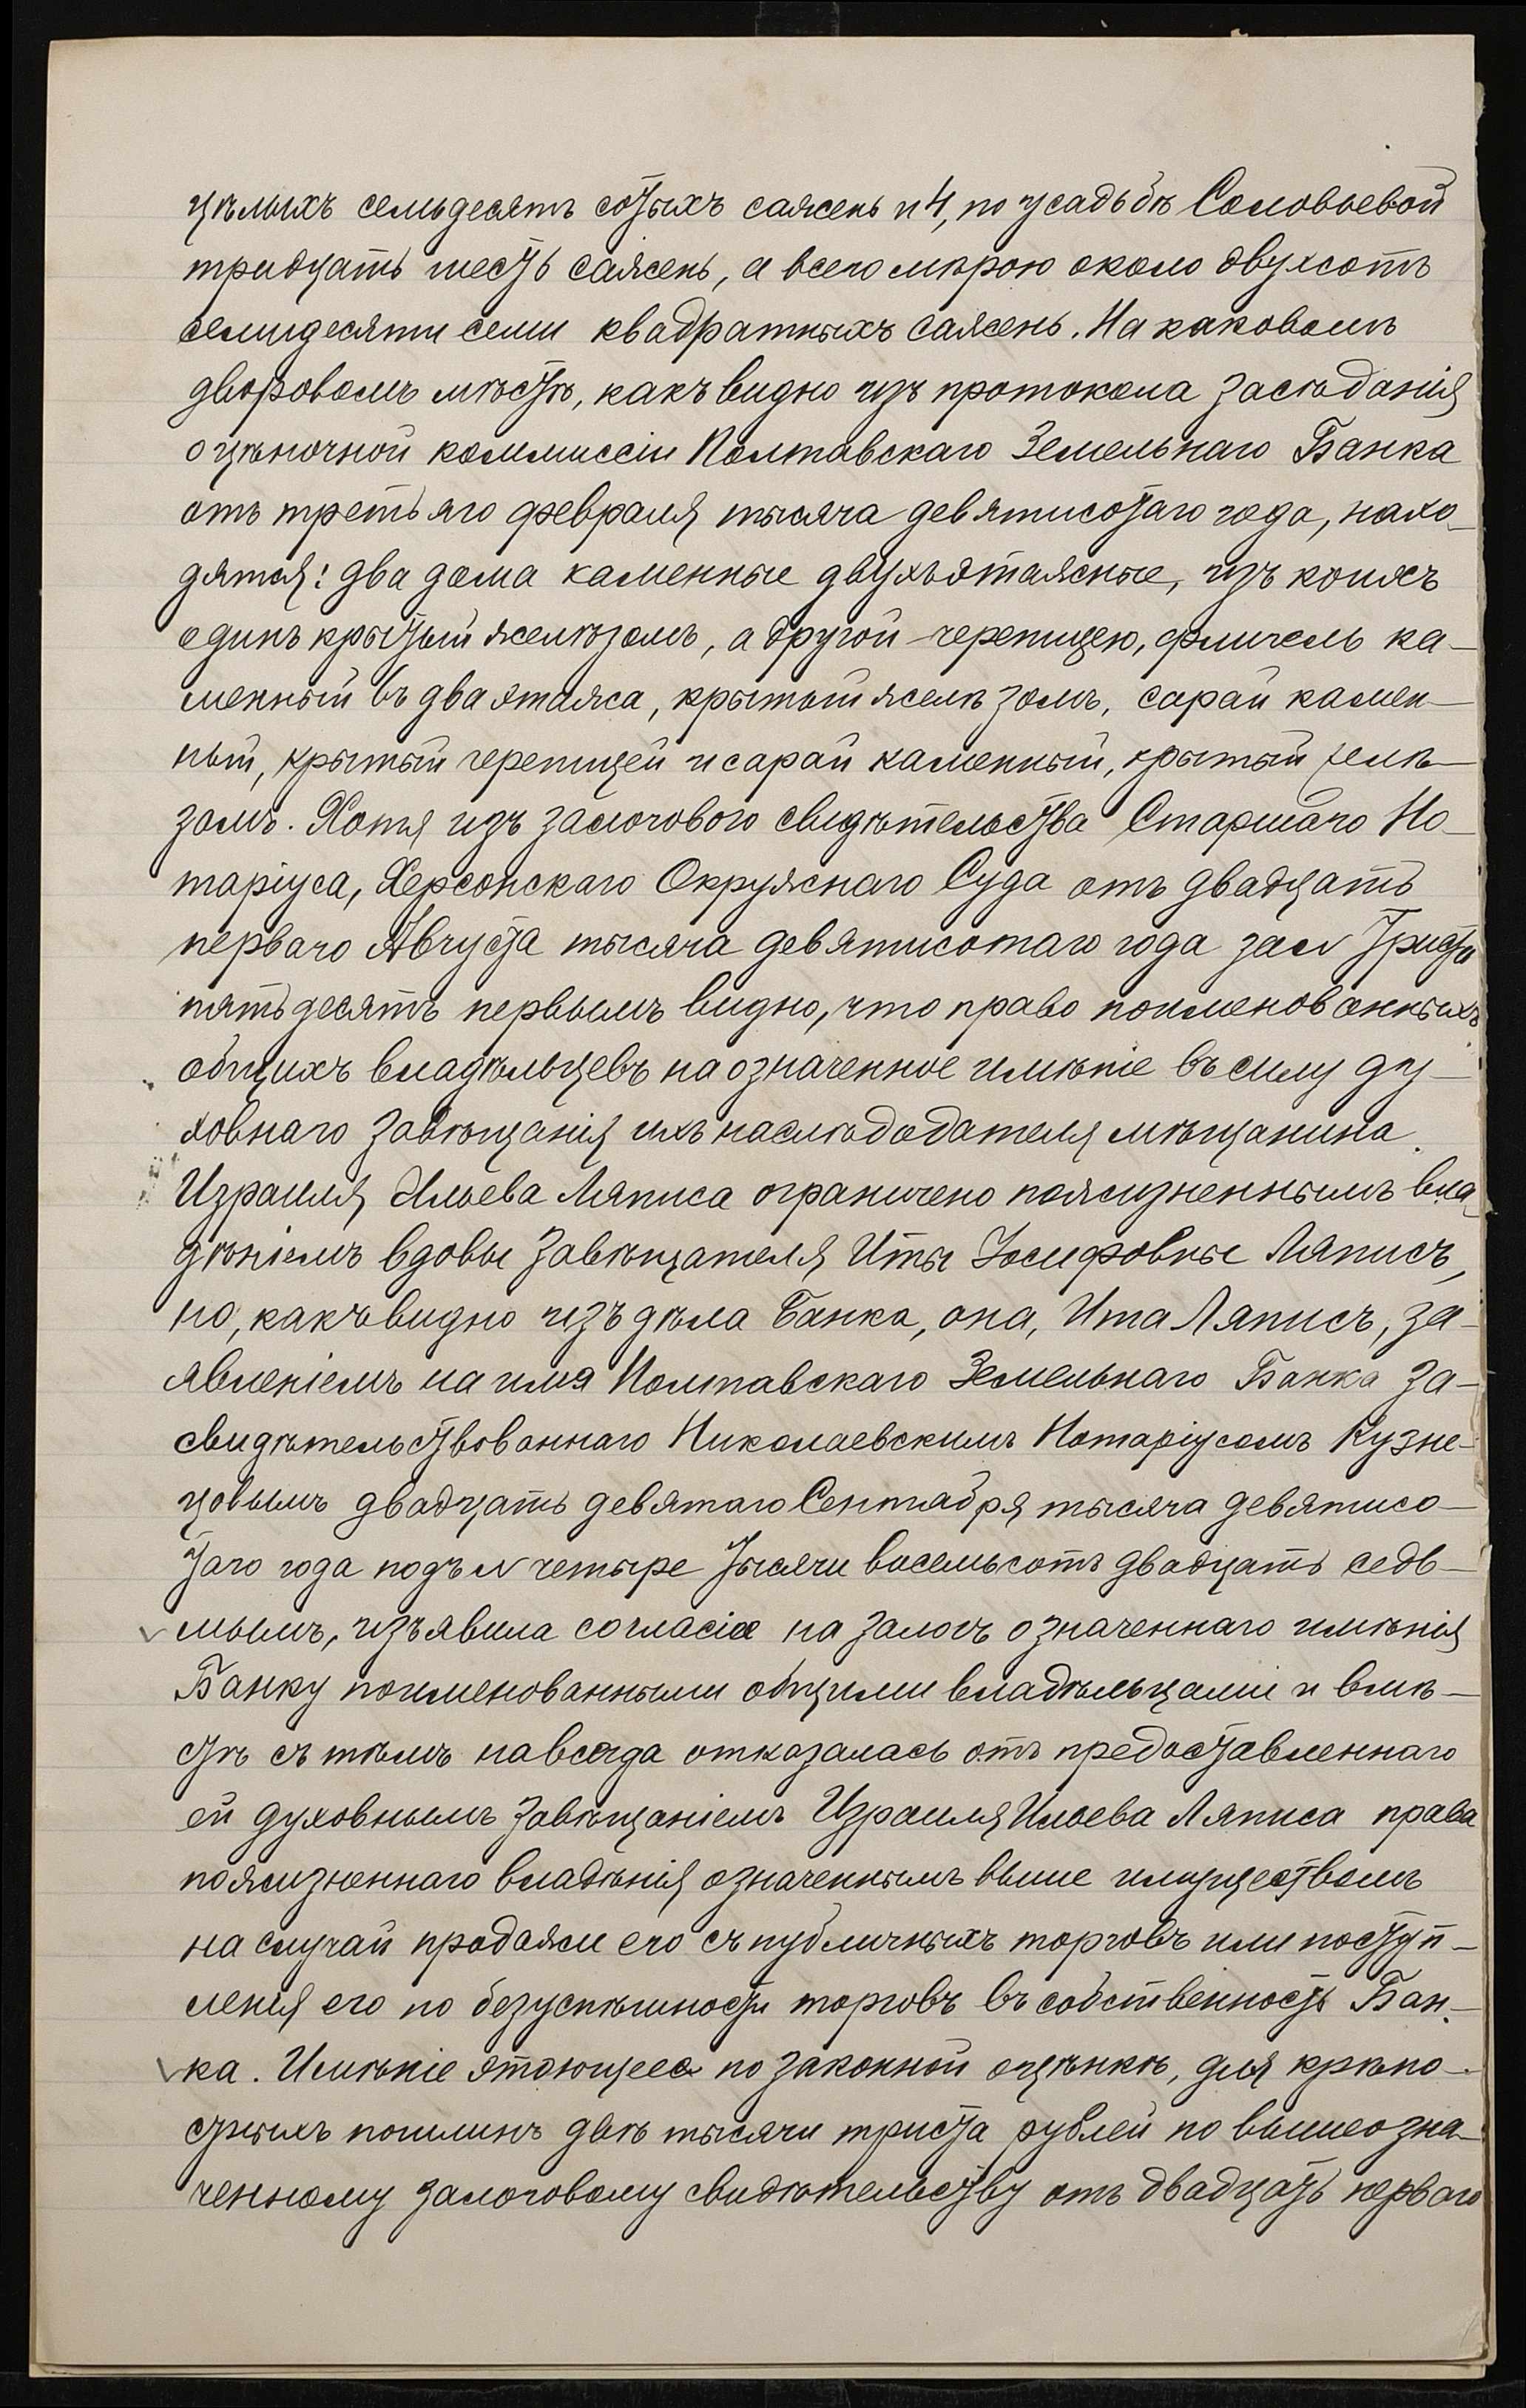 цѣлыхъ семьдесятъ сотыхъ сажень и 4, по усадьбѣ Соловьевой
тридцать шесть сажень, а всего мѣрою около двухсотъ
семидесяти семи квадратныхъ сажень. На каковомъ
дворовомъ мѣстѣ, какъ видно изъ протокола засѣданія
оцѣночной коммиссіи Полтавскаго Земельнаго Банка
отъ третьяго февраля тысяча девятисотаго года, нахо-
дятся: два дома каменные двухъэтажные, изъ коихъ
единъ крытый желѣзомъ, а другой черепицею, флигель ка-
менный въ два этажа, крытый желѣзомъ, сарай камен-
ный, крытый черепицей и сарай каменный, крытый желѣ-
зомъ. Хотя изъ залогового свидѣтельства Старшаго Но-
таріуса, Херсонскаго Окружнаго Суда отъ двадцать
перваго Августа тысяча девятисотаго года за № триста
пятьдесятъ первымъ видно, что право поименованныхъ
общихъ владѣльцевъ на означенное имѣніе въ силу ду-
ховнаго завѣщанія ихъ наслѣдодателя мѣщанина
Израиля Ильева Ляписа ограничено пожизненнымъ вла-
дѣніемъ вдовы завѣщателя Иты Іосифовны Ляписъ,
но, какъ видно изъ дѣла Банка, она, Ита Ляписъ, за-
явленіемъ на имя Полтавскаго Земельнаго Банка за-
свидѣтельствованнаго Николаевскимъ Нотаріусомъ Кузне-
цовымъ двадцать девятаго Сентября тысяча девятисо-
таго года подъ № четыре тысячи восемьсотъ двадцать седь-
мымъ, изъявила согласіе на залогъ означеннаго имѣнія
Банку поименованными общими владѣльцами и вмѣ-
стѣ съ тѣмъ навсегда отказалась отъ предоставленнаго
ей духовнымъ завѣщаніемъ Израиля Ильева Ляписа права
пожизненнаго владѣнія означеннымъ выше имуществомъ
на случай продажи его съ публичныхъ торговъ или поступ-
ленія его по безуспѣшности торговъ въ собственность Бан-
ка. Имѣніе это ющееся по законной оцѣнкѣ, для крѣпо-
стныхъ пошлинъ двѣ тысячи триста рублей по вышеозна-
ченному залоговому свидѣтельству отъ двадцать перваго